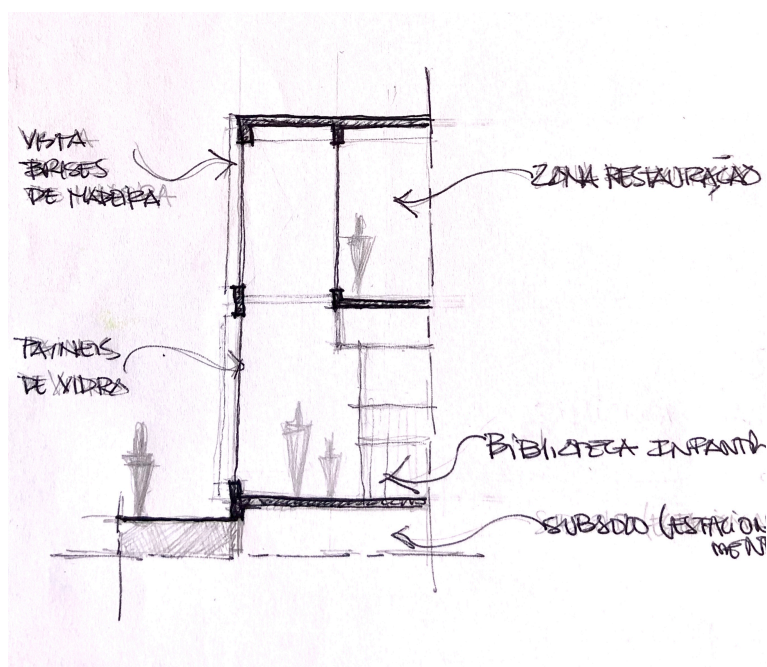 VISTA
BRISES
DE MADEIRA
ZONA RESTAURAÇÃO
PAINEIS
DE VIDRO
BIBLIOTECA INFANTIL
SUBSOLO (ESTACION
MENT